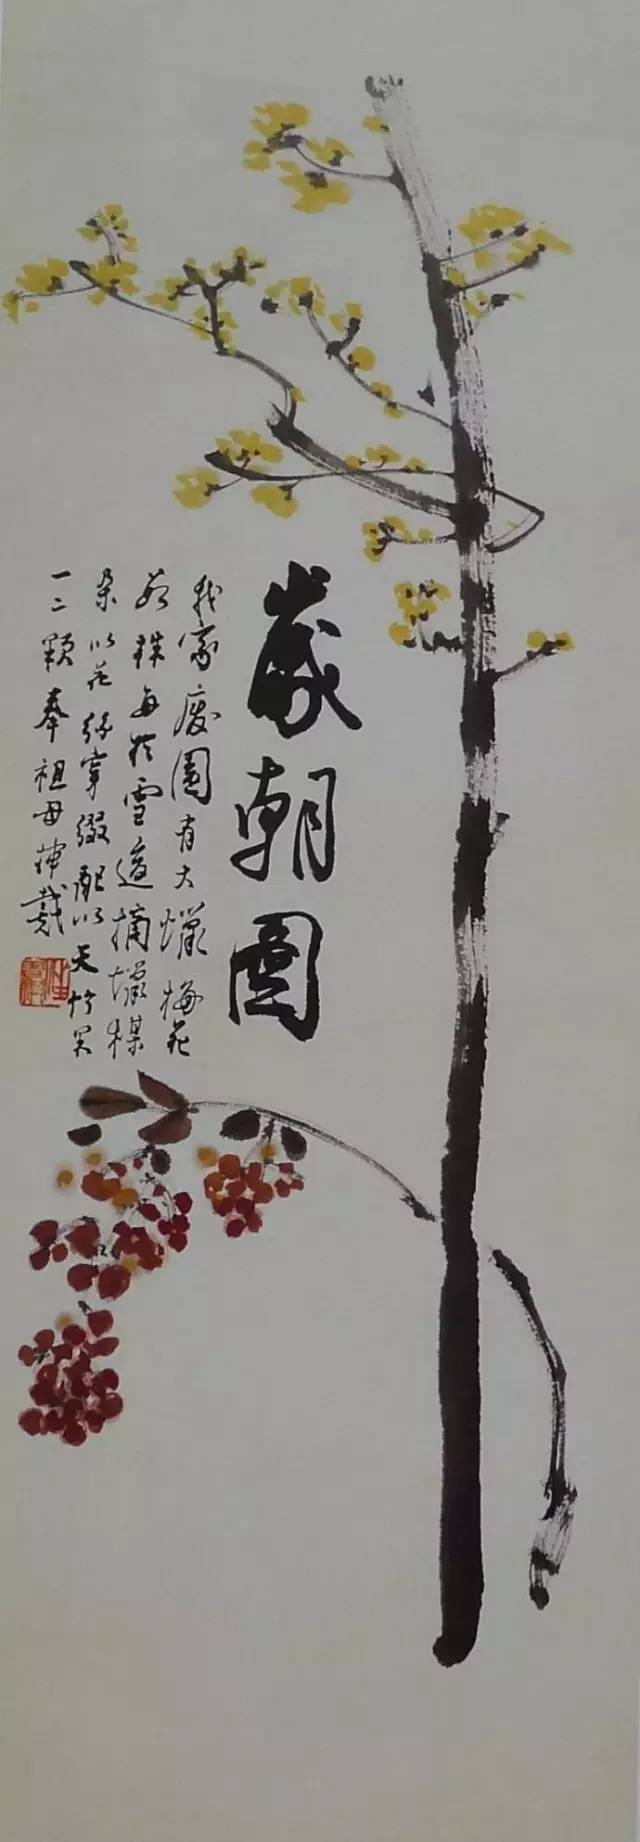 歲朝圖
我家廢園有大蠟梅花
數株每於雪後摘蠟楳
朵以花絲穿綴配以天竹果
一二顆奉祖母插戴